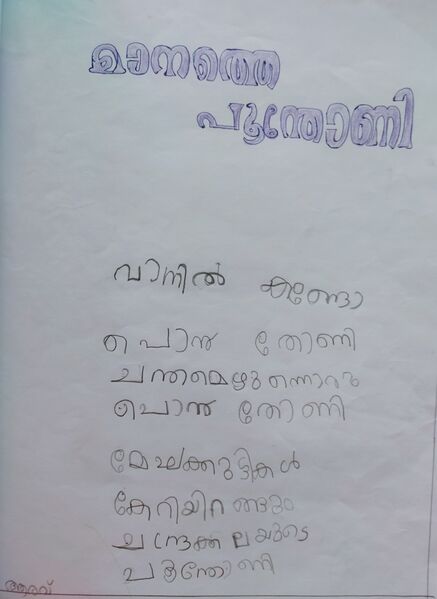 മാനത്തെ
പൂന്തോണി
വാനിൽ കണ്ടോ
പൊൻ തോണി
ചന്തമെഴുന്നൊരു
പൊൻ തോണി
മേഘക്കുട്ടികൾ
കേറിയിറങ്ങും
ചന്ദ്രക്കലയുടെ
പൂന്തോണി
ആരവ്